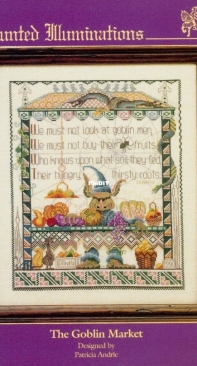 unted Illuminations
We must not look at goblin men,
We must not buy their fruits,
Who knows upon what soil they fed
Their hungry thirsty roots
The Goblin Market
Designed by
Patricia Andrle